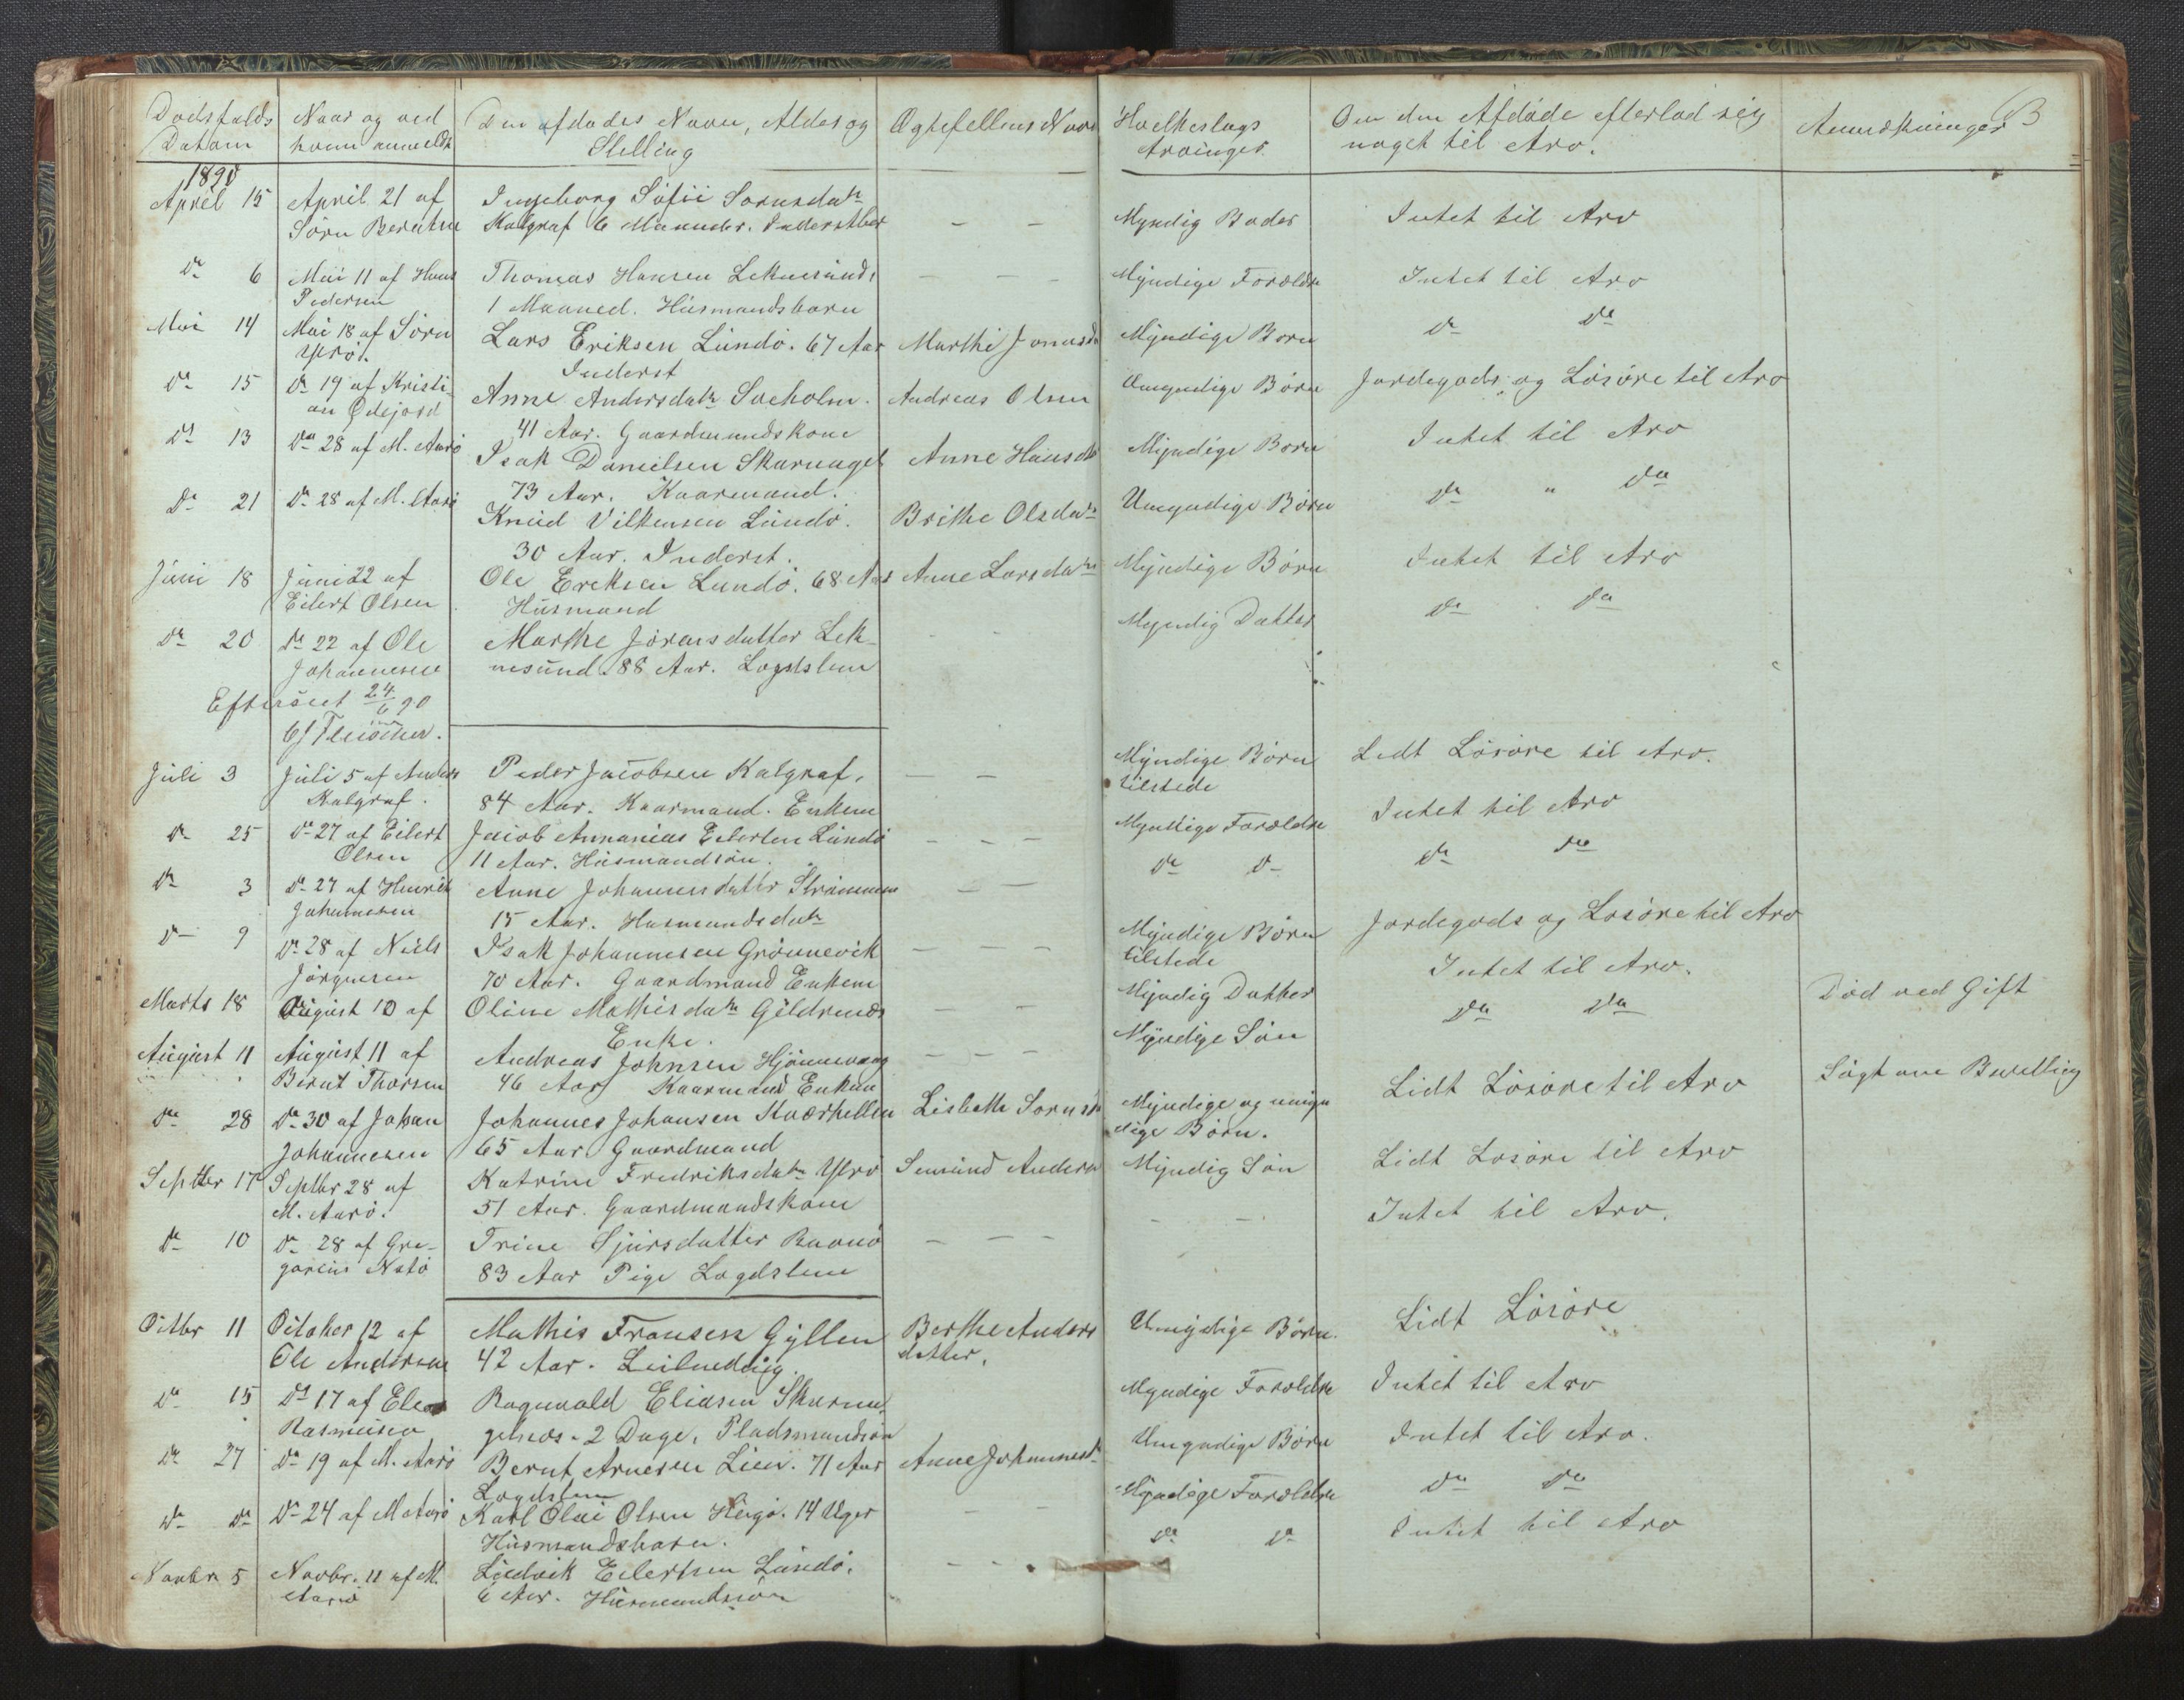 3
Dødsfalds Datum | Naar og ved hvem anmeldt | Den afdødes Navn, Alder og Stilling | Ægtefellens Navn | Hvilkeslags Arvinger. | Om den Afdøde efterlod sig noget til Arv. | Anmerkninger
1890
April 15 | April 21 af | Ingeborg Sofie Sørnsdatr | Myndig Bøder | Intet til Arv
Sørn Berntsen | Kalgraf 6 Maaneder. | — —
Do 6 | Mai 11 af Hans | Thomas Hansen Leknesund, | — — | Myndige Forældre | Intet til Arv
Pedersen | 1 Maaned. Husmandsbarn
Mai 14 | Mai 18 af Sørn | Lars Eriksen Lundø. 67 Aar | Marthe Jonasd. | Myndige Børn | Do Do
Ytrø. | Inderst
Do 15 | Do 19 af Kristi- | Anne Andersdatr Soeholm. | Andreas Olsen | Umyndige Børn | Jordegods og Løsøre til Arv
an Ødejord | 41 Aar. Gaardmandskone
Do 13 | Do 28 af M. Aarø | Isak Danielsen Skarnaget | Anne Hansdr | Myndige Børn | Intet til Arv
73 Aar. Kaarmand.
Do 21 | Do 28 af M. Aarø | Knud Vilkensen Lundø. | Brithe Olsdatr | Umyndige Børn | Do " Do
30 Aar. Inderst.
Juni 18 | Juni 22 af | Ole Ereksen Lundø. 68 Aar | Anne Larsdatr | Myndige Børn | Intet til Arv
Eilert Olsen | Husmand
Do 20 | Do 22 af Ole | Marthe Jørensdatter Lek- | - - | Myndig Datter | Do Do
Johannesen | nesund. 88 Aar. Logdslem
Efterseet 24/6 90
Juli 3 | Juli 5 af Anders | Peder Jacobsen Kalgraf. | — — | Myndige Børn | Lidt Løsøre til Arv.
Kalgraf. | 84 Aar. Kaarmand. Enkem | tilstede
Do 25 | Do 27 af Eilert | Jacob Annanias Eilertsen Lundø | — — — | Myndige Forældre | Intet til Arv
Olsen | 11 Aar. Husmandsøn.
Do 3 | Do 27 af Henrik | Anne Johannesdatter Strømmen | — — | Do Do | Do Do
Johannesen | 15 Aar. Husmandsdatr
Do 9 | Do 28 af Niels | Isak Johannesen Grønnevik | — — — | Myndige Børn | Jordegods og Løsøre til Arv
Jørgensen | 70 Aar. Gaardmand Enkem | tilstede
Marts 18 | August 10 af | Oline Mathisdatr Gildrenæs | — — | Myndig Datter | Intet til Arv. | Død ved Gift
Enke.
August 11 | August 11 af | Andreas Johnsen Hjønnevaag | — — — | Myndige Søn | Do Do
Bernt Thorsen | 46 Aar Kaarmand Enkem
Do 28 | Do 30 af Johan | Johannes Johansen Kværhellen | Lisbethe Sørnsd. | Myndige og umyn | Lidt Løsøre til Arv | Søgt om Bevilling
Johannesen | 65 Aar Gaardmand | dige Børn.
Septbr 17 | Septbr 28 af | Katrine Fredriksdatr Ytrø | Semund Andersn | Myndig Søn | Lidt Løsøre til Arv
M. Aarø. | 51 Aar. Gaardmandskone
Do 10 | Do 28 af Gre- | Trine Sjursdatter Baanø | — — — | - - | Intet til Arv.
gorius Nstø | 83 Aar Pige Logdslem
Octbr 11 | October 12 af | Mathis Fransen Gyllen | Berthe Anders | Umydige Børn. | Lidt Løsøre
Ole Andersen | 42 Aar. Leilænding. | datter.
Do 15 | Do 17 af Elias | Ragnvald Eliasen Skarnn | Myndige Forældre | Intet til Arv
Rasmusen | gelnæs. 2 Dage. Pladsmandsøn
Do 27 | Do 19 af M. Aarø | Bernt Arnesen Lien. 71 Aar | Anne Johannesdr | Umyndige Børn | Intet til Arv.
Logdslem
Do Do | Do 24 af M Aarø | Karl Olai Olsen Heigø. 14 Uger | — | Myndige Forældre | Do Do
Husmandsbarn.
Novbr 5 | Novbr. 11 af M. | Ludvik Eilertsen Lundø. | — — | Do Do | Intet til Arv
Aarø | 6 Aar. Husmandsøn